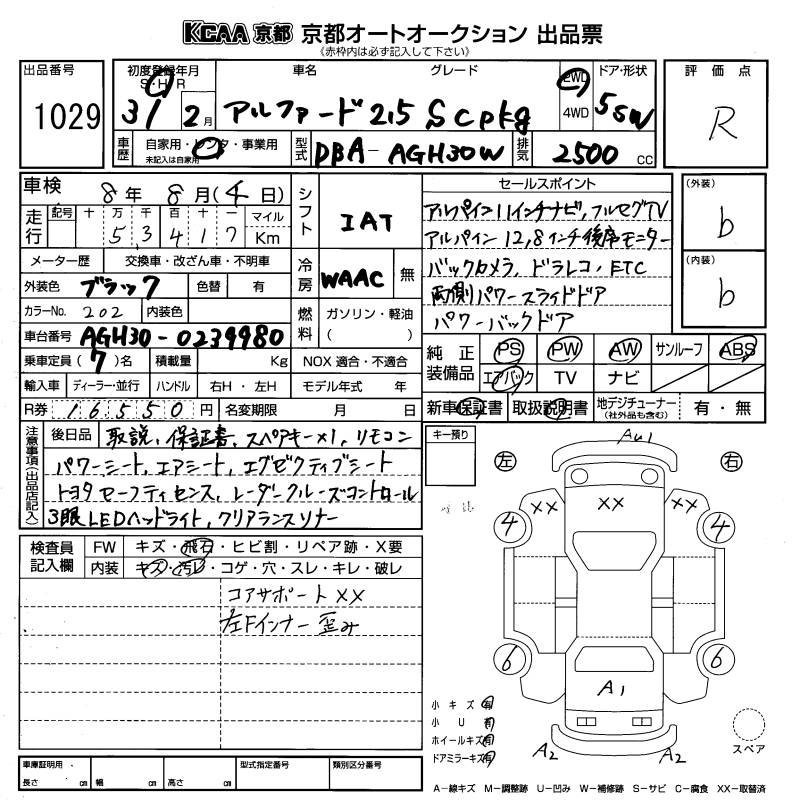 KCAA 京都 京都オートオークション 出品票
《赤枠内は必ず記入して下さい》
出品番号
1029
初度登録年月
S・H・R
31 2月
車名 グレード
アルファード 2.5 S C pkg
2WD
4WD
ドア・形状
5 SW
評価点
R
車歴
自家用・レンタ・事業用
未記入は自家用
型式
DBA-AGH30W
排気
2500 CC
車検
8年 8月(4日)
走行
記号 十 万 千 百 十 一 マイル
5 3 4 1 7 Km
シフト
IAT
メーター歴 交換車・改ざん車・不明車
外装色 ブラック 色替 有
冷房
WAAC 無
カラーNo. 202 内装色
燃料
ガソリン・軽油
( )
車台番号 AGH30-0239980
乗車定員(7)名 積載量 Kg NOX 適合・不適合
輸入車 ディーラー・並行 ハンドル 右H・左H モデル年式 年
R券 16550円 名変期限 月 日
セールスポイント
アルパイン11インチナビ,フルセグTV
アルパイン12,8インチ後席モニター
バックカメラ,ドラレコ,ETC
両側パワースライドドア
パワーバックドア
(外装)
b
(内装)
b
純正装備品
PS PW AW サンルーフ ABS
エアバック TV ナビ
新車保証書 取扱説明書 地デジチューナー(社外品も含む) 有・無
注意事項(出品店記入)
後日品 取説,保証書,スペアキー×1,リモコン
パワーシート,エアシート,エグゼクティブシート
トヨタセーフティセンス,レーダークルーズコントロール
3眼LEDヘッドライト,クリアランスソナー
キー預り
検査員記入欄
FW キズ・飛石・ヒビ割・リペア跡・X要
内装 キズ・汚レ・コゲ・穴・スレ・キレ・破レ
コアサポートXX
左Fインナー歪み
左 右
AU1
XX XX XX
4 4
6 6
A1
A2 A2
小キズ 有
小U 有
ホイールキズ 有
ドアミラーキズ 有
スペア
車庫証明用
長さ cm 幅 cm 高さ cm
型式指定番号 類別区分番号
A−線キズ M−調整跡 U−凹み W−補修跡 S−サビ C−腐食 XX−取替済